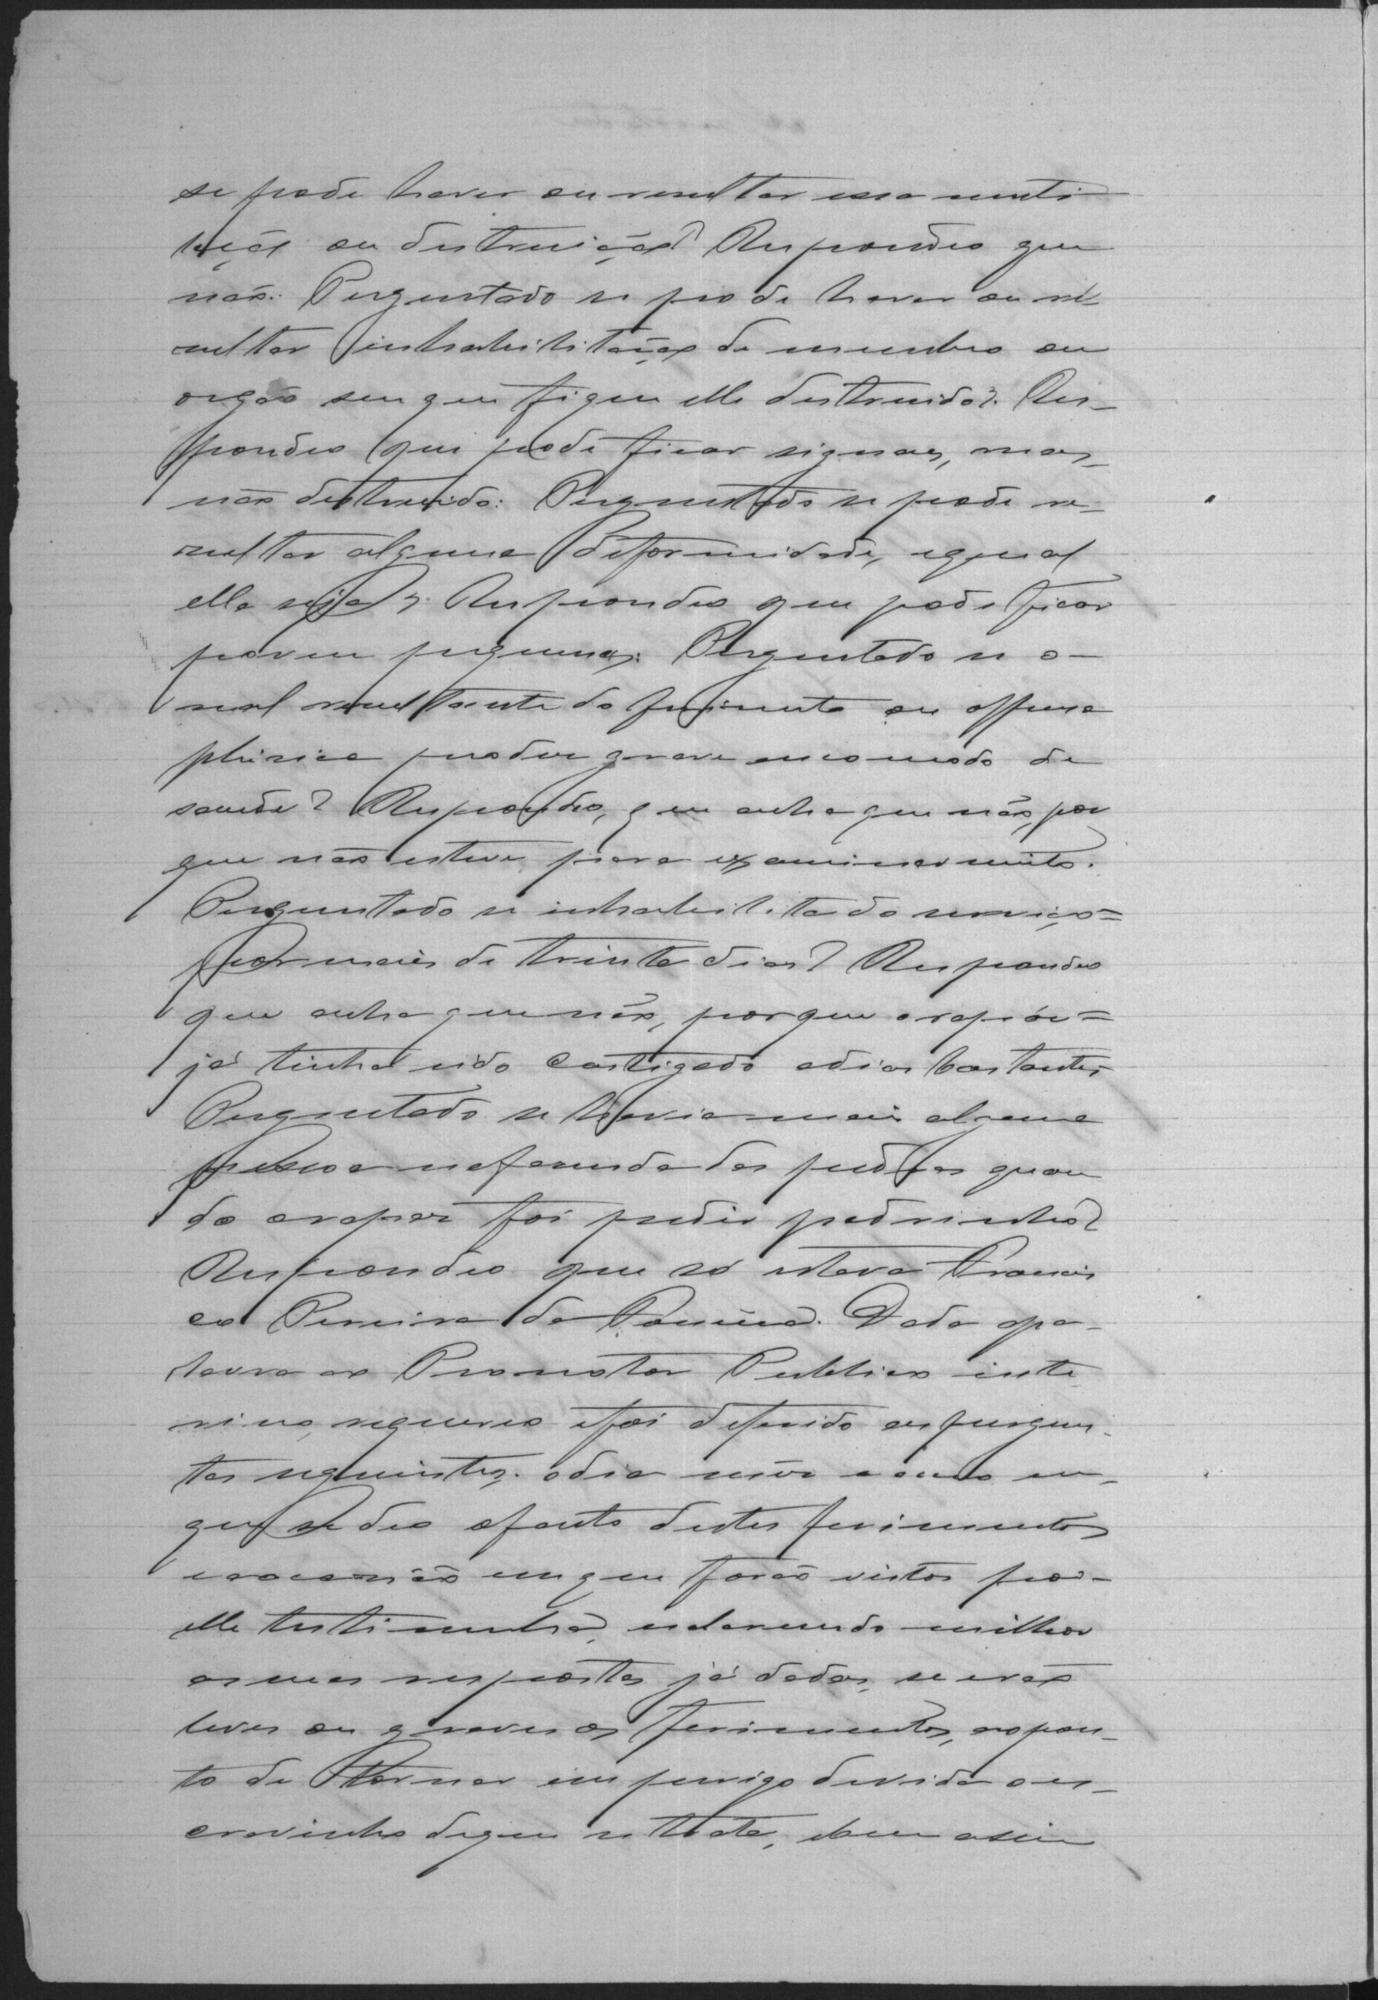 se pode haver ou resultar essa muti
lação ou destruição? Respondeo que
não. Perguntado se pode haver ou re
sultar inhabilitação de membro ou
orgão sem que fique elle destruido? Res-
pondeo que pode ficar signaes, mas
não destruido: Perguntado se pode re-
sultar alguma deformidade, e qual
ella seja? Respondeo que pode ficar
porem pequena: Perguntado se o
mal resultante do ferimento ou offensa
phisica produz grave encomodo de
saude? Respondeo, que acha que não, por
que não esteve para examinar muito.
Perguntado se inhabilita do serviço=
por mais de trinta dias? Respondeo
que acha que não, porque o rapás=
já tinha sido castigado a dias bastantes
Perguntado se havia mais alguma
pessoa na fazenda das pedras quan
do o rapas foi pedir padrinho?
Respondeo que só estava Francis
co Pereira da  Dada a pa-
lavra ao Promotor Publico inte
rino, requereo e foi deferido as pergun-
tas seguintes: o dia mês e anno em-
que se deo o facto destes ferimentos
e occasião em que forão vistos por-
elle testimunha, esclarecendo milhor
as suas respostas já dadas, se erão
leves ou graves os ferimentos, ao pon-
to de tornar em perigo de vida o es-
cravinho de que se trata, e bem assim